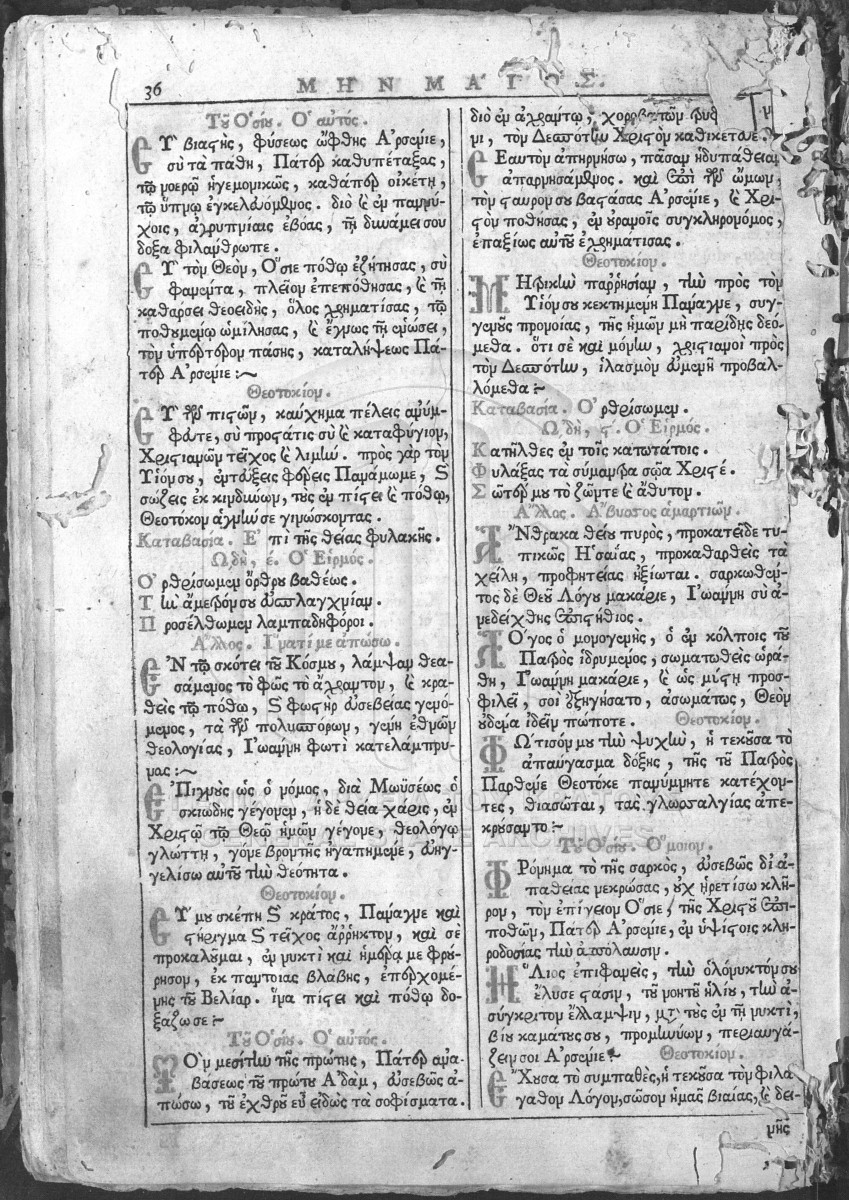 36
ΜΗΝ ΜΑΪΟΣ.
Τοῦ Ὁσίου. Ὁ αὐτός.
Σὺ βιαστής, φύσεως ὤφθης Ἀρσένιε,
σὺ τὰ πάθη, Πάτερ καθυπέταξας,
τῷ νοερῷ ἡγεμονικῶς, καθάπερ οἰκέτῃ,
τῷ ὕπνῳ ἐγκελευόμενος. διὸ καὶ ἐν παννύ-
χοις, ἀγρυπνίαις ἐβόας, τῇ δυνάμει σου
δόξα φιλάνθρωπε.
Σὺ τὸν Θεὸν, Ὅσιε πόθῳ ἐζήτησας, σὺ
φανέντα, πλεῖον ἐπεπόθησας, καὶ τῇ
καθάρσει θεοειδὴς, ὅλος χρηματίσας, τῷ
ποθουμένῳ ὡμίλησας, καὶ ἔγνως τῇ ἑνώσει,
τὸν ὑπέρτερον πάσης, καταλήψεως Πά-
τερ Ἀρσένιε :~
Θεοτοκίον.
Σὺ τῶν πιστῶν, καύχημα πέλεις ἀνύμ-
φευτε, σὺ προστάτις σὺ καὶ καταφύγιον,
Χριστιανῶν τεῖχος καὶ λιμήν. πρὸς γὰρ τὸν
Υἱόν σου, ἐντεύξεις φέρεις Πανάμωμε, καὶ
σώζεις ἐκ κινδύνων, τοὺς ἐν πίστει καὶ πόθῳ,
Θεοτόκον ἁγνήν σε γινώσκοντας.
Καταβασία. Ἐπὶ τῆς θείας φυλακῆς.
ᾨδὴ, ε. Ὁ Εἱρμός.
Ὀρθρίσωμεν ὄρθρου βαθέως.
Τὴν ἄμετρόν σου εὐσπλαγχνίαν.
Προσέλθωμεν λαμπαδηφόροι.
Ἄλλος. Ἵνα τί με ἀπώσω.
Ἐν τῷ σκότει τοῦ Κόσμου, λάμψαν θεα-
σάμενος τὸ φῶς τὸ ἄχραντον, καὶ κρα-
θεὶς τῷ πόθῳ, καὶ φωστὴρ εὐσεβείας γενό-
μενος, τὰ τῶν πολυσπόρων, γένη ἐθνῶν
θεολογίας, Ἰωάννη φωτὶ κατελάμπρυ-
νας :~
Στυγνὸς ὡς ὁ νόμος, διὰ Μωϋσέως ὁ
σκιώδης γέγονεν, ἡ δὲ θεία χάρις, ἐν
Χριστῷ τῷ Θεῷ ἡμῶν γέγονε, θεολόγῳ
γλώττῃ, γόνε βροντῆς ἠγαπημένε, εὐηγ-
γελίσω αὐτοῦ τὴν θεότητα.
Θεοτοκίον.
Σύ μου σκέπη καὶ κράτος, Πάναγνε καὶ
στήριγμα καὶ τεῖχος ἄῤῥηκτον, καὶ σὲ
προκαλοῦμαι, ἐν νυκτὶ καὶ ἡμέρᾳ με φρού-
ρησον, ἐκ παντοίας βλάβης, ἐπερχομέ-
νης τοῦ Βελίαρ. ἵνα πίστει καὶ πόθῳ δο-
ξάζω σε :~
Τοῦ Ὁσίου. Ὁ αὐτός.
Τὸν μεσίτην τῆς πρώτης, Πάτερ ἀνα-
βάσεως τοῦ πρώτου Ἀδάμ, εὐσεβῶς ἀ-
πώσω, τοῦ ἐχθροῦ εὖ εἰδὼς τὰ σοφίσματα.
διὸ ἐν ἀχράντῳ, χορευτῶν
τὸν Δεσπότην Χριστὸν καθικέτευε.
Σεαυτὸν ἀπηρνήσω, πᾶσαν ἡδυπάθειαν
ἀπαρνησάμενος. καὶ ἐπὶ τῶν ὤμων,
τὸν σταυρόν σου βαστάσας Ἀρσένιε, καὶ Χρι-
στὸν ποθήσας, ἐν οὐρανοῖς συγκληρονόμος,
ἐπαξίως αὐτοῦ ἐχρημάτισας.
Θεοτοκίον.
Μητρικὴν παῤῥησίαν, τὴν πρὸς τὸν
Υἱόν σου κεκτημένη Πάναγνε, συγ-
γενοῦς προνοίας, τῆς ἡμῶν μὴ παρίδῃς δεό-
μεθα. ὅτι σὲ καὶ μόνην, χριστιανοὶ πρὸς
τὸν Δεσπότην, ἱλασμὸν εὐμενῆ προβαλ-
λόμεθα :~
Καταβασία. Ὀρθρίσωμεν.
ᾨδὴ, ϛ. Ὁ Εἱρμός.
Κατῆλθες ἐν τοῖς κατωτάτοις.
Φυλάξας τὰ σήμαντρα σῶα Χριστέ.
Σῶτέρ μου τὸ ζῶντε καὶ ἄθυτον.
Ἄλλος. Ἄβυσσος ἁμαρτιῶν.
Ἄνθρακα θείου πυρός, προκατεῖδε τυ-
πικῶς Ἡσαΐας, προκαθαρθεὶς τὰ
χείλη, προφητείας ἠξίωται. σαρκωθέν-
τος δὲ Θεοῦ Λόγου μακάριε, Ἰωάννη σὺ ἀ-
νεδείχθης ἐπιστήθιος.
Λόγος ὁ μονογενής, ὁ ἐν κόλποις τοῦ
Πατρὸς ἱδρυμένος, σωματωθεὶς ὡρά-
θη, Ἰωάννη μακάριε, καὶ ὡς μύστῃ προσ-
φιλεῖ, σοὶ ἐξηγήσατο, ἀσωμάτως, Θεὸν
οὐδένα ἰδεῖν πώποτε. Θεοτοκίον.
Φώτισόν μου τὴν ψυχὴν, ἡ τεκοῦσα τὸ
ἀπαύγασμα δόξης, τῆς τοῦ Πατρὸς
Παρθένε Θεοτόκε πανύμνητε κατέχον-
τες, θιασῶται, τὰς γλωσσαλγίας ἀπε-
κρούσαντο :~
Τοῦ Ὁσίου. Ὅμοιον.
Φρόνημα τὸ τῆς σαρκός, εὐσεβῶς δι' ἀ-
παθείας νεκρώσας, οὐχ ᾑρετίσω κλῆ-
ρον, τὸν ἐπίγειον Ὅσιε, τῆς Χριστοῦ ἐπι-
ποθῶν, Πάτερ Ἀρσένιε, ἐν ὑψίστοις κλη-
ροδοσίας τὴν ἀπόλαυσιν.
Ἥλιος ἐπιφανεὶς, τὴν ὁλόνυκτόν σου
ἔλυσε στάσιν, τοῦ νοητοῦ ἡλίου, τὴν ἀ-
σύγκριτον ἔλλαμψιν, μετὰ τοὺς ἐν τῇ νυκτὶ,
βίου καμάτους σου, προμηνύων, περιαυγά-
ζειν σοι Ἀρσένιε :~ Θεοτοκίον.
Ἔχουσα τὸ συμπαθές, ἡ τεκοῦσα τὸν φιλά
γαθον Λόγον, σῶσον ἡμᾶς βιαίας, καὶ δει-
νῆς